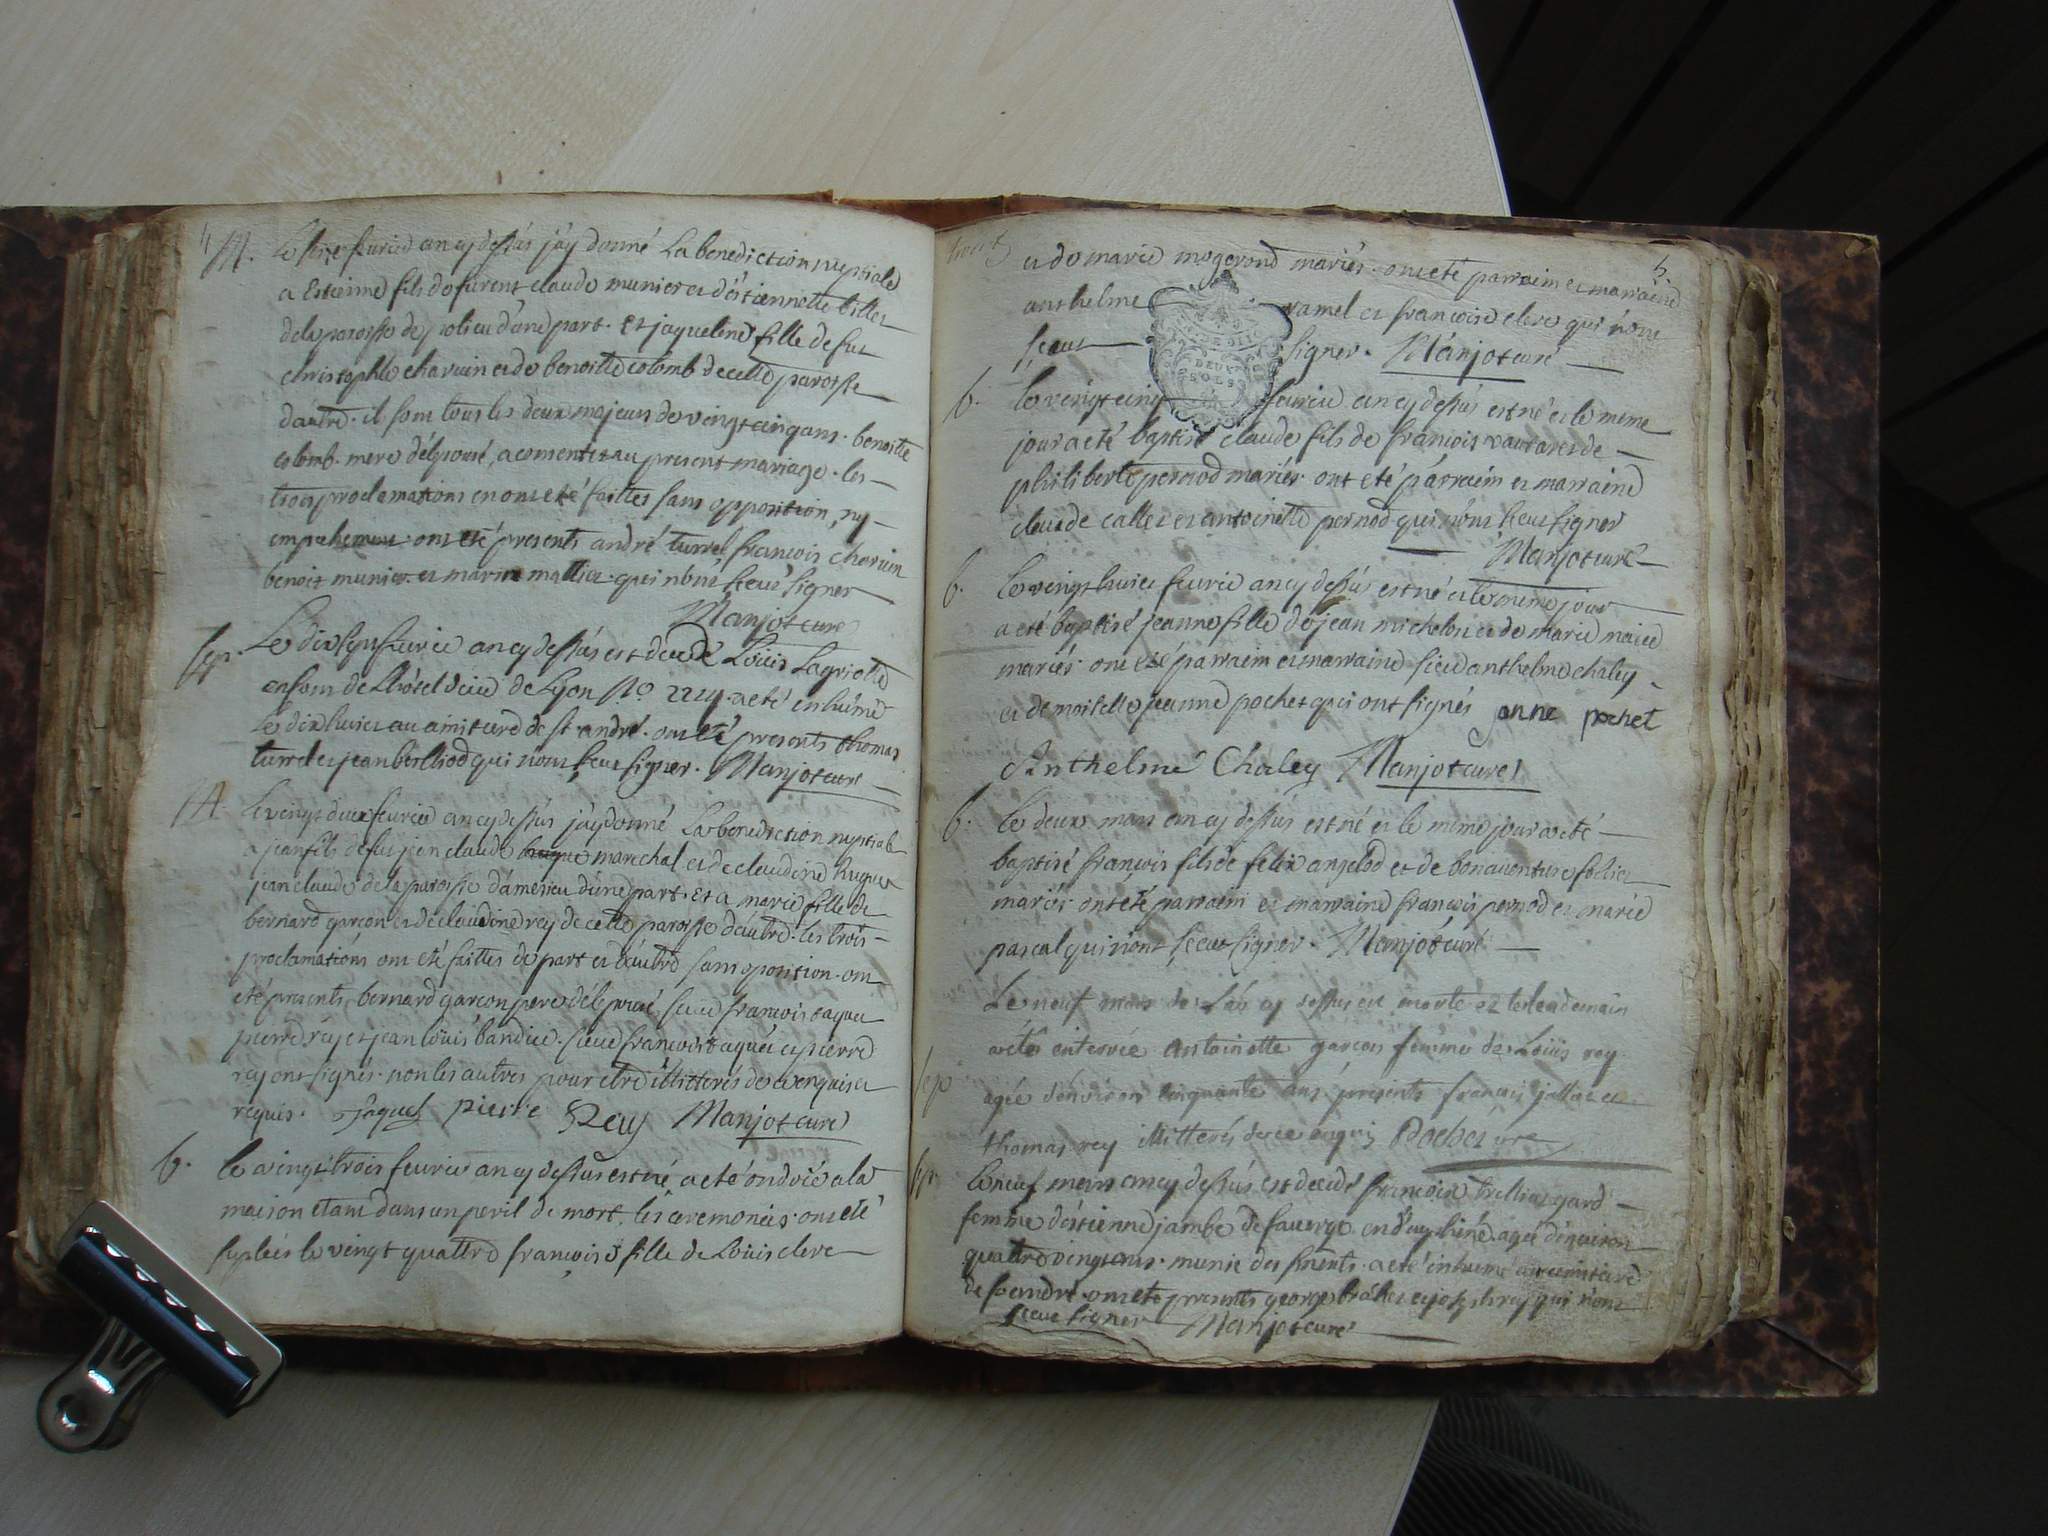 4
M. Le seize fevrier an cy dessus j'ay donné La benediction nuptiale
a Estienne fils de furent claude munier et d'éstiennette billet
de la paroisse de d'une part. Et jaqueline fille de fut
christophle charuin et de benoitte colomb de cette paroisse
d'autre. il sont tous les deux majeurs de vingt cinq ans. benoitte
colomb. mere de l'épouse, a consentit au present mariage. les
trois proclamations en ont eté faittes sans opposition, ny
empechement ont eté presents andré turrel françois charuin
benoit munier et mattieu qui n'ont sceut signer
Manjot curé
sep. Le dix sept fevrier an cy dessus est decedé Loüis Lagriotte
enfant de L'hôtel dieu de Lyon No 2224. a eté inhumé
Le dix huict au cimitiere de st andré. ont eté presents thomas
turrel et jean berlliod qui n'ont sceut signer. Manjot curé
M. Le vingt deux fevrier an cy dessus j'ay donné La benediction nuptiale
a jean fils de fut jean claude marechal et de claudine hugue
jean claude de la paroisse d'amerieu d'une part. Et a marie fille de
bernard garcon et de claudine rey de cette paroisse d'autre. les trois
proclamations ont eté faittes de part et d'autre sans oposition. ont
eté presents, bernard garcon pere de l'épouse, sieur francois jaquet
pierre rey et jean loüis bandier. sieur francois jaquet et pierre
rey ont signés. non les autres pour etre illitterés de ce enquis et
requis. jaquet pierre Rey Manjot curé
b. le vingt trois fevrier an cy dessus est né a eté ondoié a la
maison etant dans un peril de mort. les ceremonies. ont eté
suplées le vingt quattre françoise fille de Loüis clerc
5
et de marie mogerond mariés. ont eté parrain et marraine
anthelme ramel et francoise clerc qui n'ont
sceut signer. Manjot curé
DEUX
SOLS
b. le vingt cinq fevrier an cy dessus est né et le meme
jour a eté baptisé claude fils de francois et de
philiberte pernod mariés. ont eté parrain et marraine
claude callet et antoinette pernod qui n'ont sceut signer
Manjot curé
b. le vingt huict fevrier an cy dessus est né et le meme jour
a eté baptisé jeanne fille de jean michelon et de marie
mariés. ont eté parraim et marraine sieur anthelme chaley
et demoiselle jeanne pochet qui ont signés anne pochet
Anthelme Chaley Manjot curé
b. le deux mars an cy dessus est né et le meme jour a eté
baptisé francois fils de felix angelod et de bonaventure
mariés. ont eté parrain et marraine francois pernod et marie
pascal qui n'ont sceut signer. Manjot curé
Le neuf mars de Lan cy dessus est morte et le lendemain
a eté enterree antoinette garcon femme de Loüis rey
sep agée d'environ cinquante ans presents francois jallat et
thomas rey illitterés de ce enquis Rochet
sep. Le neuf mars an cy dessus est decedé francoise
femme d'éstienne jambe de faverge en d'auphiné agée d'environ
quattre vingt ans. munie des srments. a eté inhumé au cimitiere
de st andré. ont eté presents george et joseph rey qui n'ont
sceut signer Manjot curé